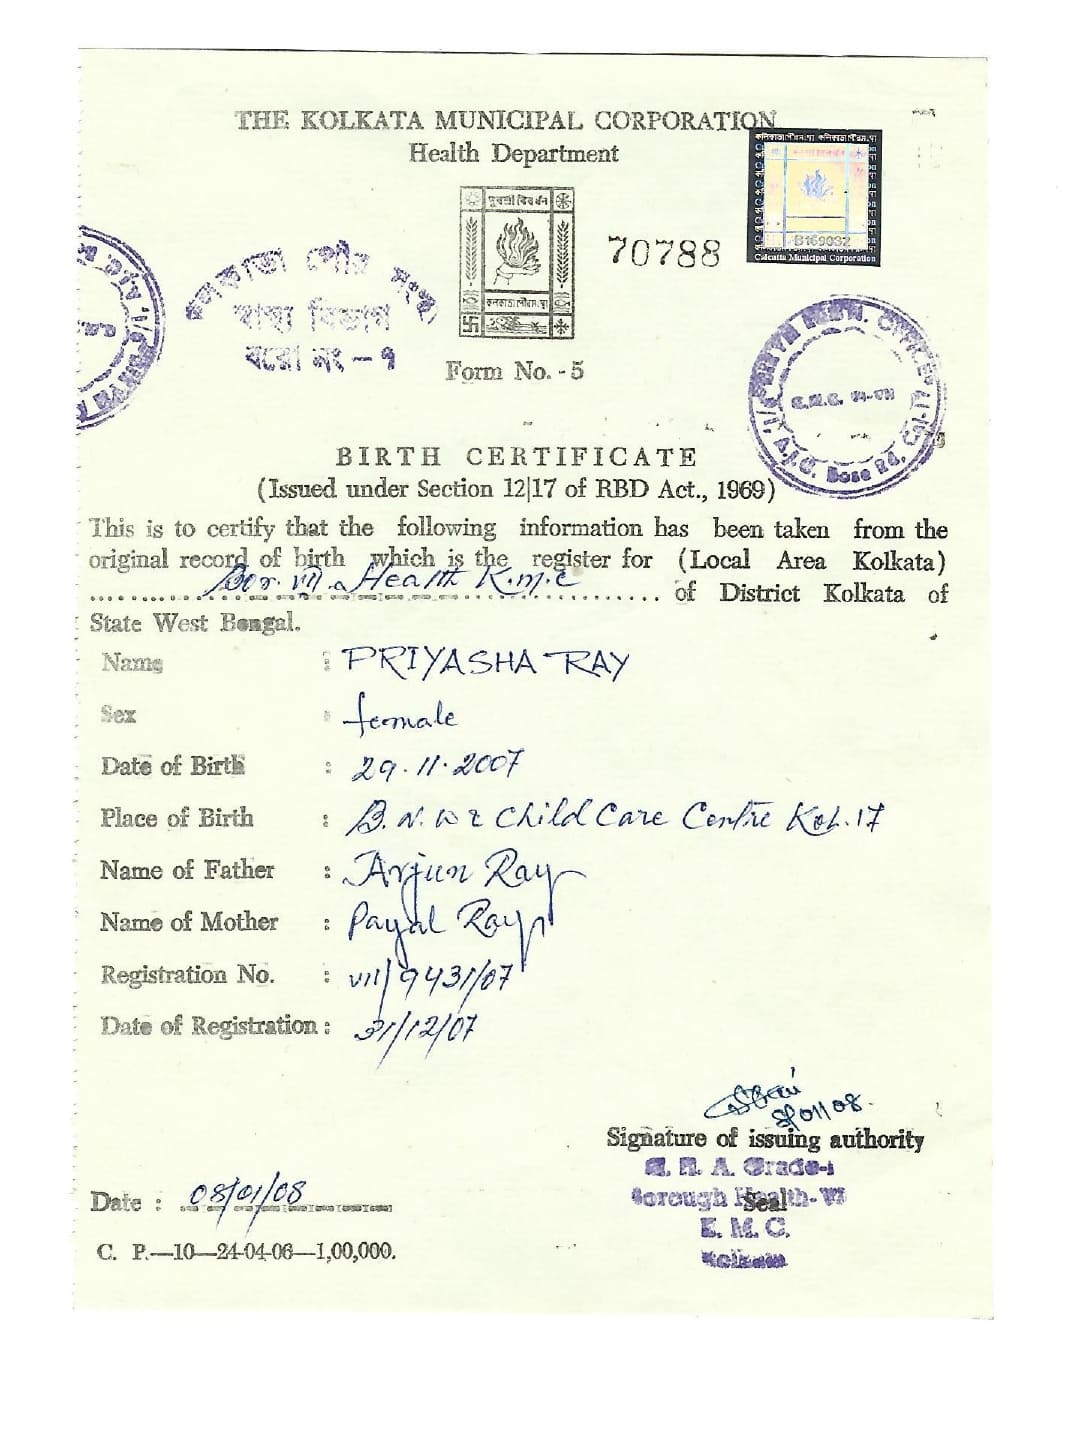 THE KOLKATA MUNICIPAL CORPORATION
Health Department
কলিকাতা পৌরসংস্থা
B169032
Calcutta Municipal Corporation
পুরশ্রী বিবর্ধন
কলিকাতা পৌরসংস্থা
70788
কলকাতা পৌর সংস্থা
স্বাস্থ্য বিভাগ
বরো নং - ৭
Form No. - 5
A.J.C. Bose Rd.
BIRTH CERTIFICATE
(Issued under Section 12|17 of RBD Act., 1969)
This is to certify that the following information has been taken from the
original record of birth which is the register for (Local Area Kolkata)
Bor. VII Health K.M.C of District Kolkata of
State West Bengal.
Name : PRIYASHA RAY
Sex : female
Date of Birth : 29.11.2007
Place of Birth : B. N. W & Child Care Centre Kol. 17
Name of Father : Arjun Ray
Name of Mother : Payal Ray
Registration No. : VII/9431/07
Date of Registration : 31/12/07
Signature of issuing authority
Grade-I
Borough Health-VII
Seal
K. M. C.
Kolkata
Date : 08/01/08
C. P.—10—24-04-06—1,00,000.